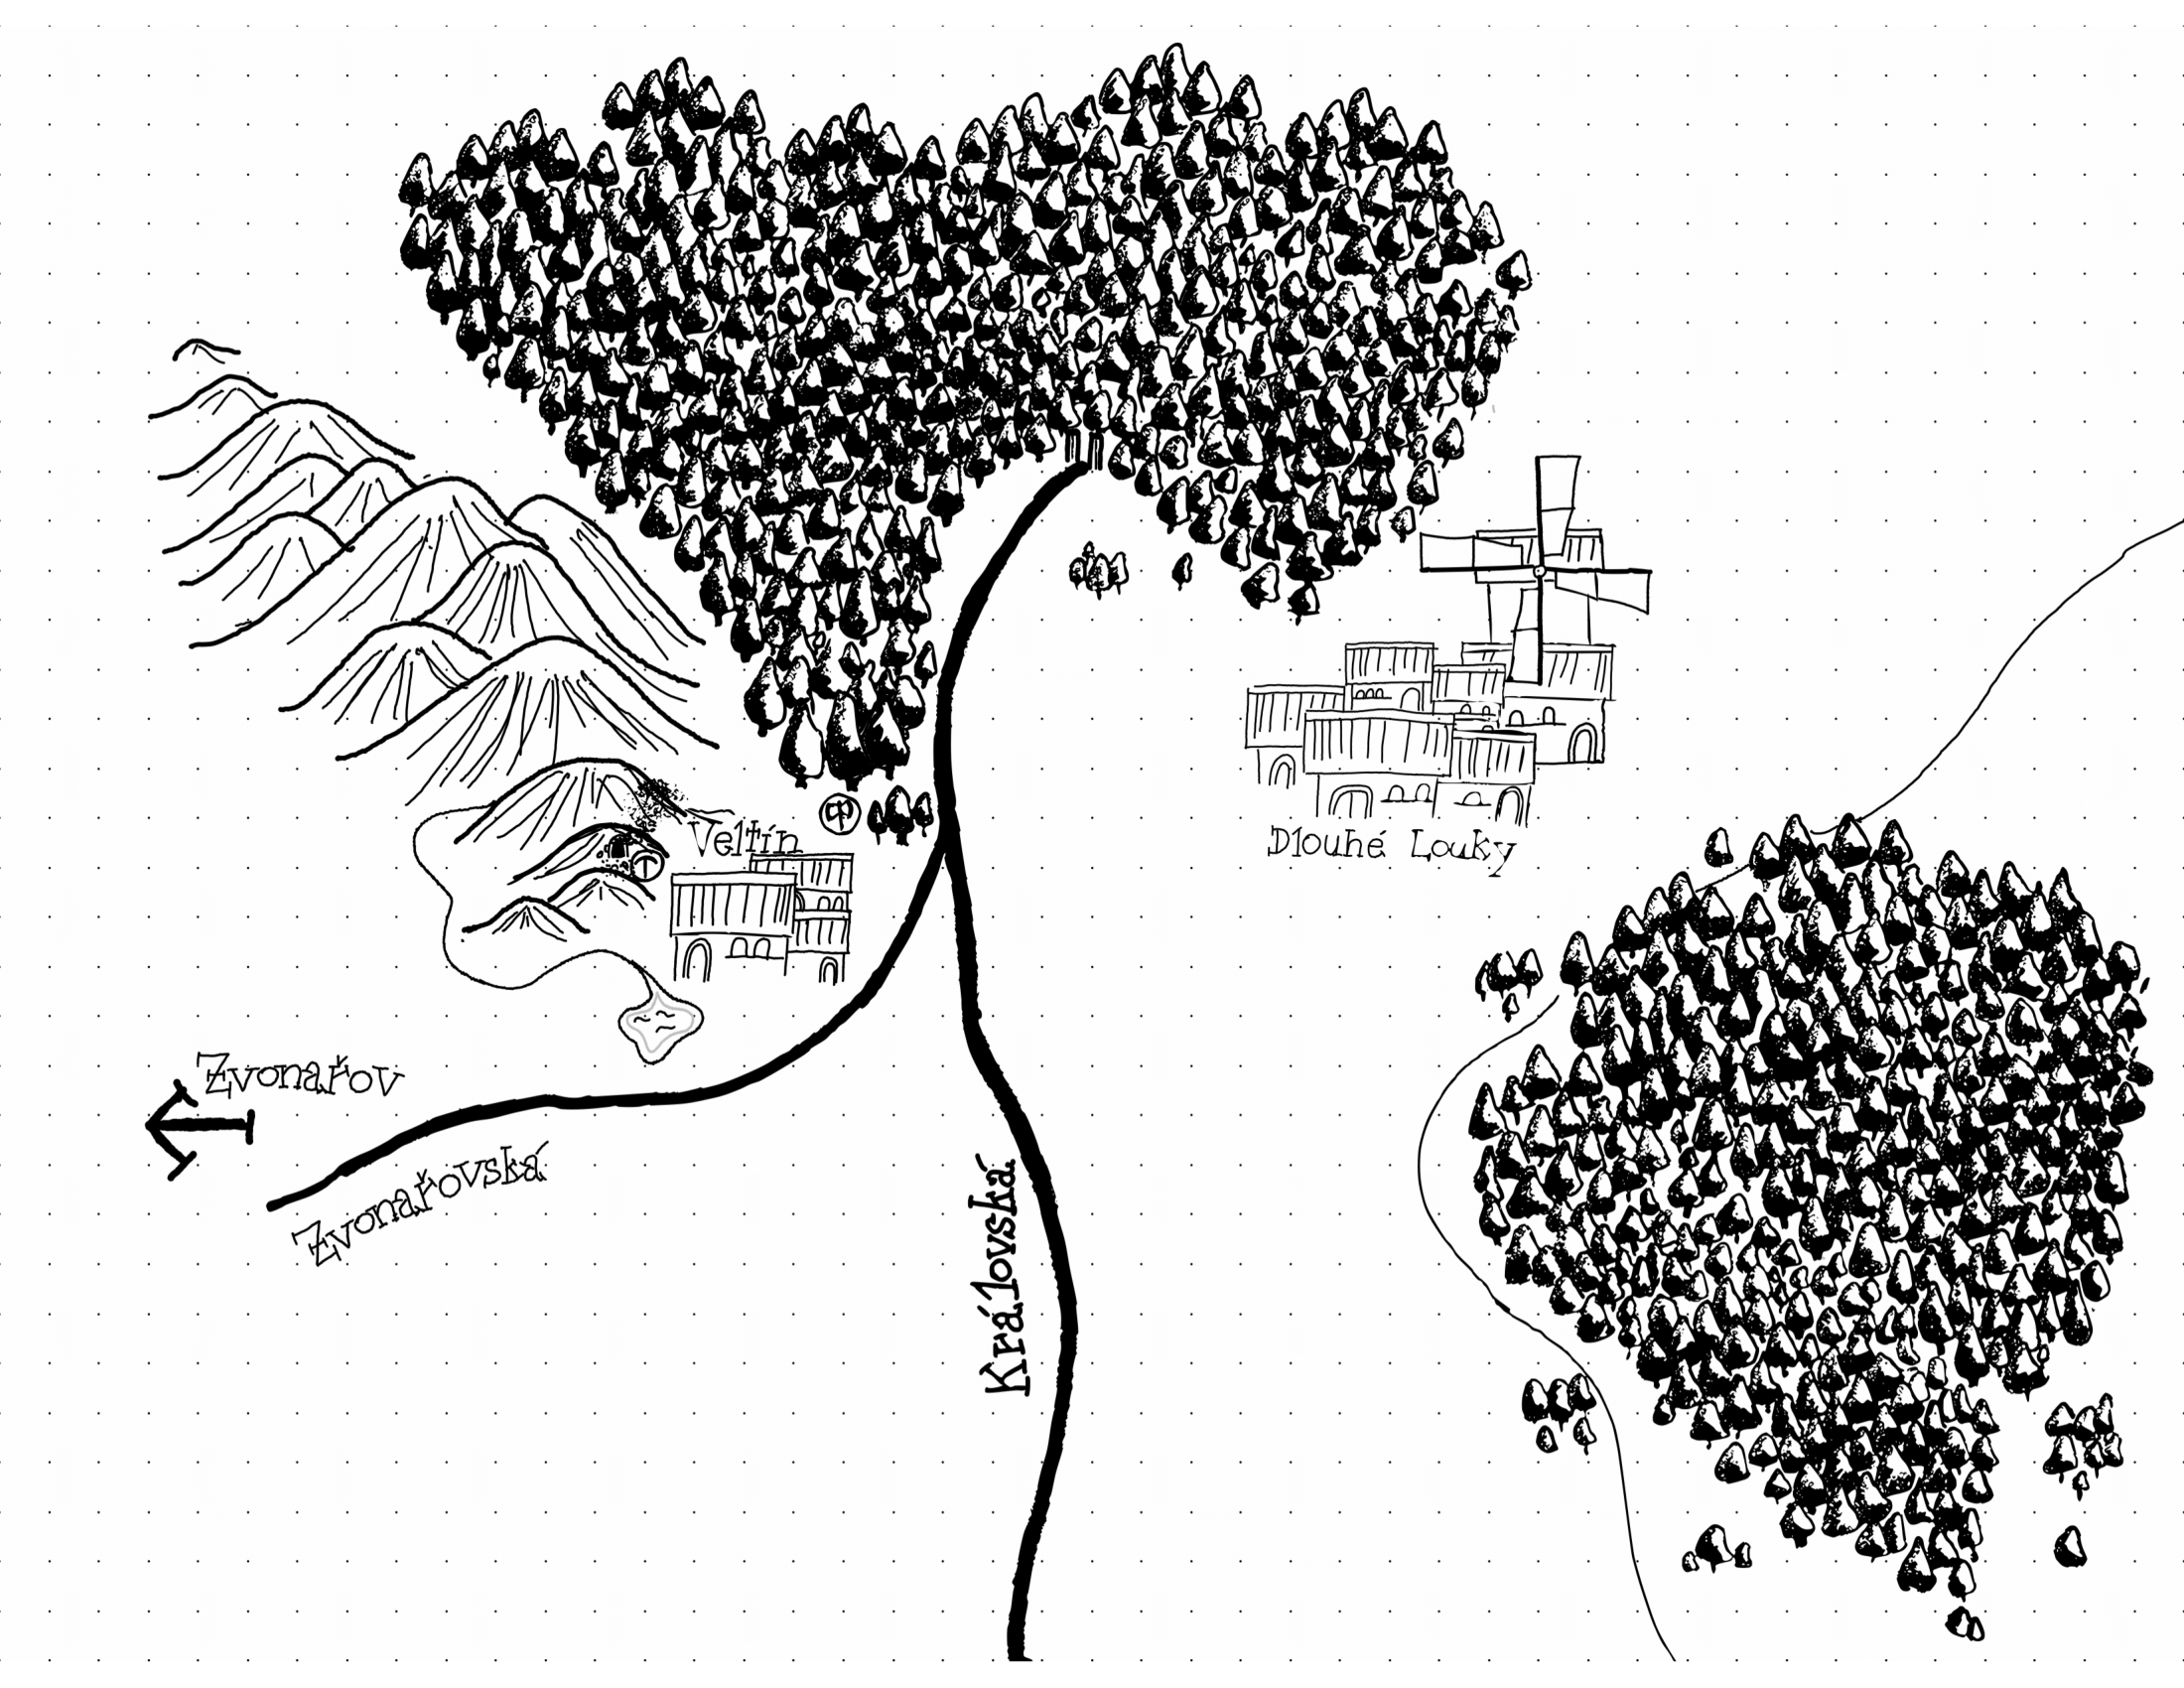 Veltín
Dlouhé Louky
Zvonařov
Zvonařovská
Královská